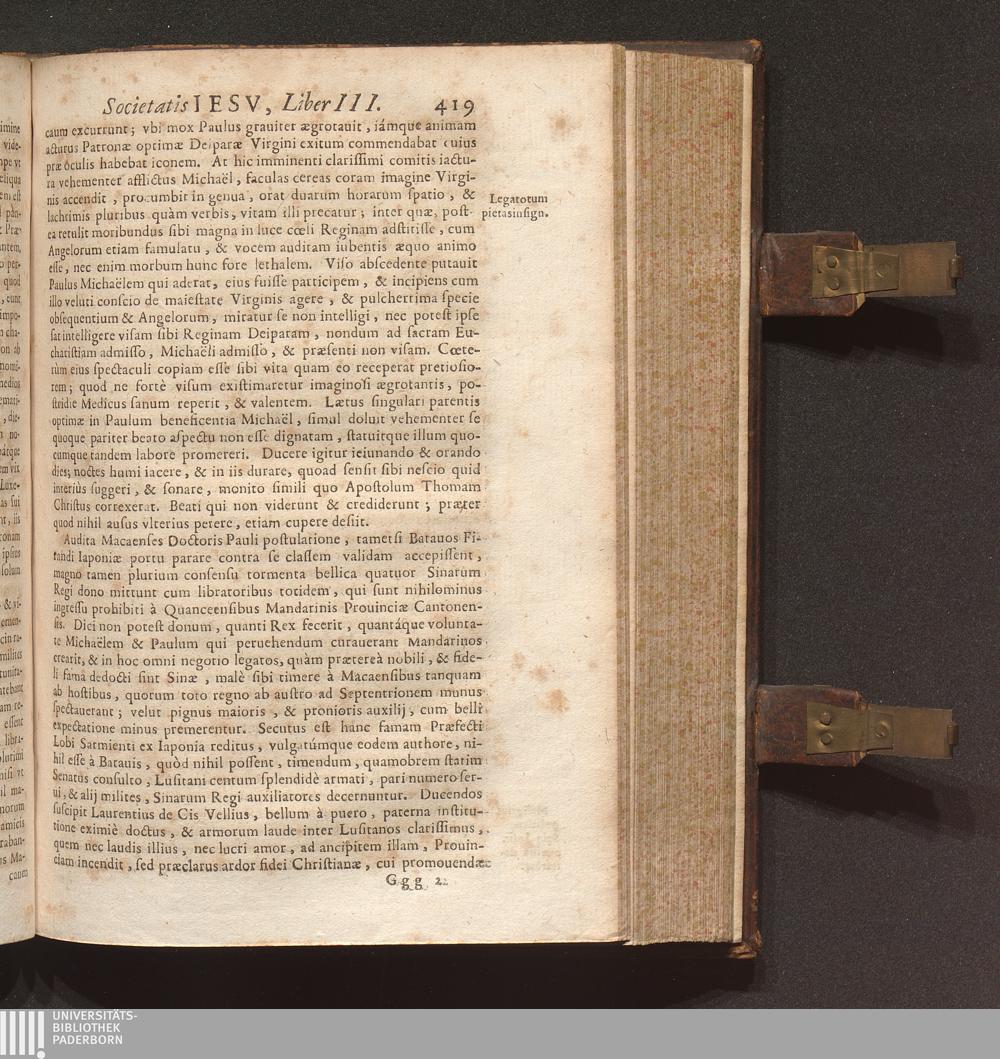 Societatis IESV, Liber III. 419
caum excurrunt; vbi mox Paulus grauiter ægrotauit, iámque animam
acturus Patronæ optimæ Deiparæ Virgini exitum commendabat cuius
præ oculis habebat iconem. At hic imminenti clarissimi comitis iactu-
ra vehementer afflictus Michaël, faculas cereas coram imagine Virgi-
nis accendit, procumbit in genua, orat duarum horarum spatio, &
lachrimis pluribus quàm verbis, vitam illi precatur; inter quæ, post-
ea retulit moribundus sibi magna in luce cœli Reginam adstitisse, cum
Angelorum etiam famulatu, & vocem auditam iubentis æquo animo
esse, nec enim morbum hunc fore lethalem. Viso abscedente putauit
Paulus Michaëlem qui aderat, eius fuisse participem, & incipiens cum
illo veluti conscio de maiestate Virginis agere, & pulcherrima specie
obsequentium & Angelorum, miratur se non intelligi, nec potest ipse
sat intelligere visam sibi Reginam Deiparam, nondum ad sacram Eu-
charistiam admisso, Michaëli admisso, & præsenti non visam. Cœte-
rùm eius spectaculi copiam esse sibi vita quam eo receperat pretiosio-
rem; quod ne fortè visum existimaretur imaginosi ægrotantis, po-
stridie Medicus sanum reperit, & valentem. Lætus singulari parentis
optimæ in Paulum beneficentia Michaël, simul doluit vehementer se
quoque pariter beato aspectu non esse dignatam, statuitque illum quo-
cumque tandem labore promereri. Ducere igitur ieiunando & orando
dies; noctes humi iacere, & in iis durare, quoad sensit sibi nescio quid
interiùs suggeri, & sonare, monito simili quo Apostolum Thomam
Christus correxerat. Beati qui non viderunt & crediderunt; præter
quod nihil ausus vlterius petere, etiam cupere desiit.
Legatotum
pietas insign.
Audita Macaenses Doctoris Pauli postulatione, tametsi Batauos Fi-
randi Iaponiæ portu parare contra se classem validam accepissent,
magno tamen plurium consensu tormenta bellica quatuor Sinarum
Regi dono mittunt cum libratoribus totidem, qui sunt nihilominus
ingressu prohibiti à Quanceensibus Mandarinis Prouinciæ Cantonen-
sis. Dici non potest donum, quanti Rex fecerit, quantáque volunta-
te Michaëlem & Paulum qui peruehendum curauerant Mandarinos
crearit, & in hoc omni negotio legatos, quàm prætereà nobili, & fide-
li famâ dedocti sint Sinæ, malè sibi timere à Macaensibus tanquam
ab hostibus, quorum toto regno ab austro ad Septentrionem munus
spectauerant; velut pignus maioris, & pronioris auxilij, cum belli
expectatione minus premerentur. Secutus est hanc famam Præfecti
Lobi Sarmienti ex Iaponia reditus, vulgatúmque eodem authore, ni-
hil esse à Batauis, quòd nihil possent, timendum, quamobrem statim
Senatus consulto, Lusitani centum splendidè armati, pari numero ser-
ui, & alij milites, Sinarum Regi auxiliatores decernuntur. Ducendos
suscipit Laurentius de Cis Vellius, bellum à puero, paterna institu-
tione eximiè doctus, & armorum laude inter Lusitanos clarissimus,
quem nec laudis illius, nec lucri amor, ad ancipitem illam, Prouin-
ciam incendit, sed præclarus ardor fidei Christianæ, cui promouendæ
Ggg 2
UNIVERSITÄTS-
BIBLIOTHEK
PADERBORN